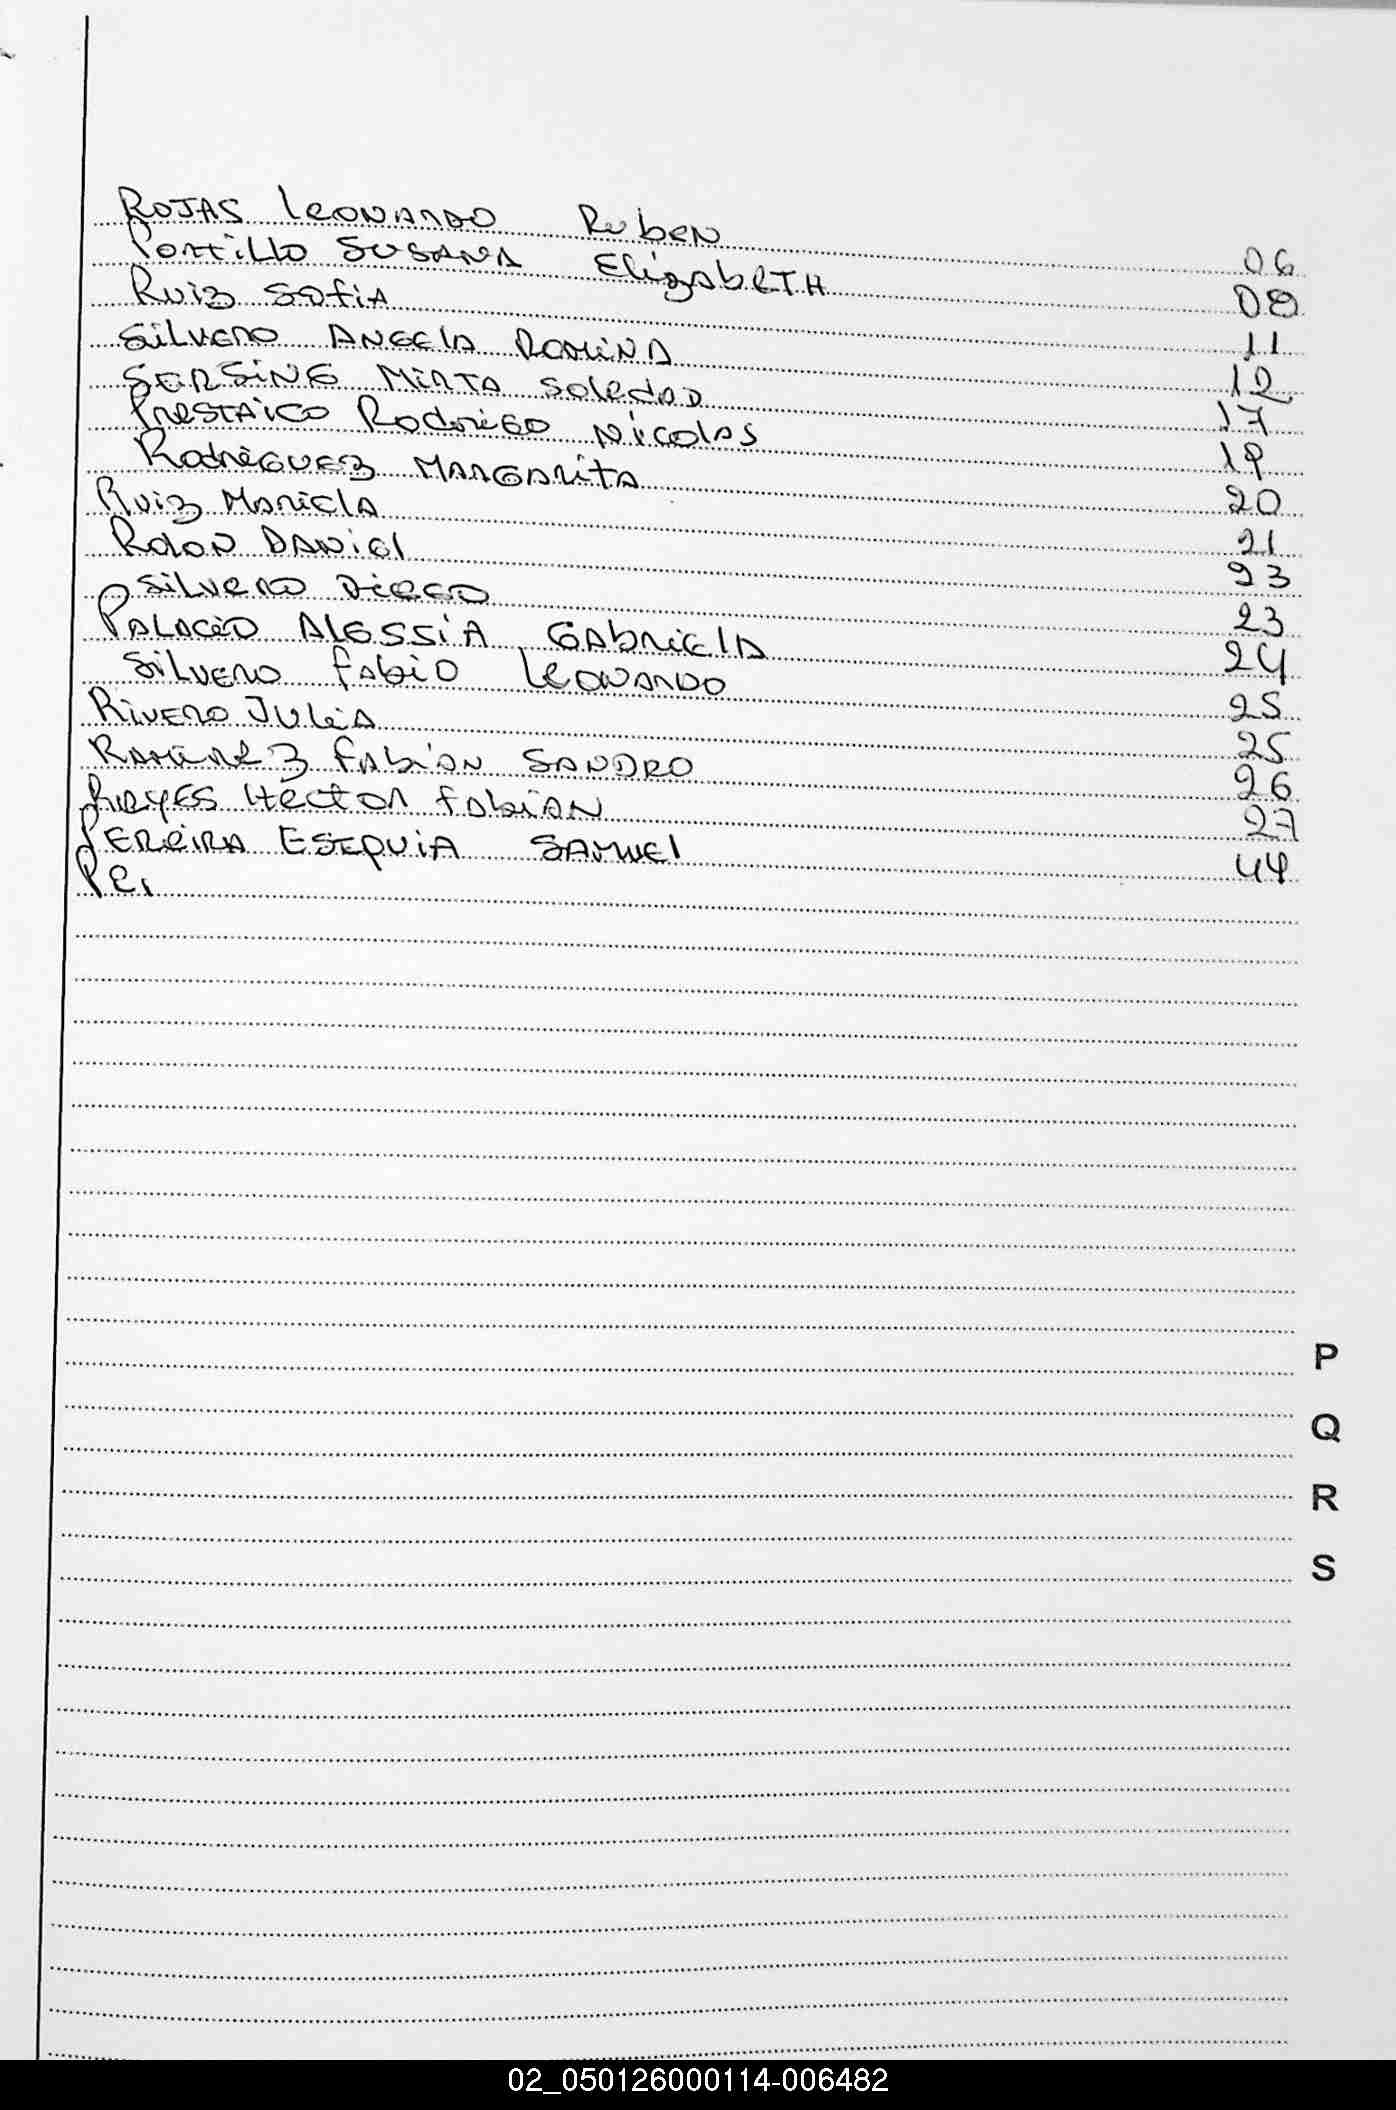 ROJAS LEONARDO RubEN 06
PORTILLO SUSANA ElizAbETH 08
Ruiz SOFIA 11
SILVERO ANGELA ROMINA 12
SERSING MIRTA SoledAD 17
PRESTAICO RODRIGO NICOLAS 19
RODRIGUEZ MARGARITA 20
Ruiz MARIELA 21
ROLON DANIEL 23
SILVERO DIEGO 23
PALACIO ALESSIA GAbRIELA 24
SILVERO FAbIO LEONARDO 25
RIVERO JULIA 25
RAMIREZ FAbIAN SANDRO 26
REYES HECTOR FAbIAN 27
PEREIRA ESEQUIA SAMUEL 44
PEI
P
Q
R
S
02_050126000114-006482